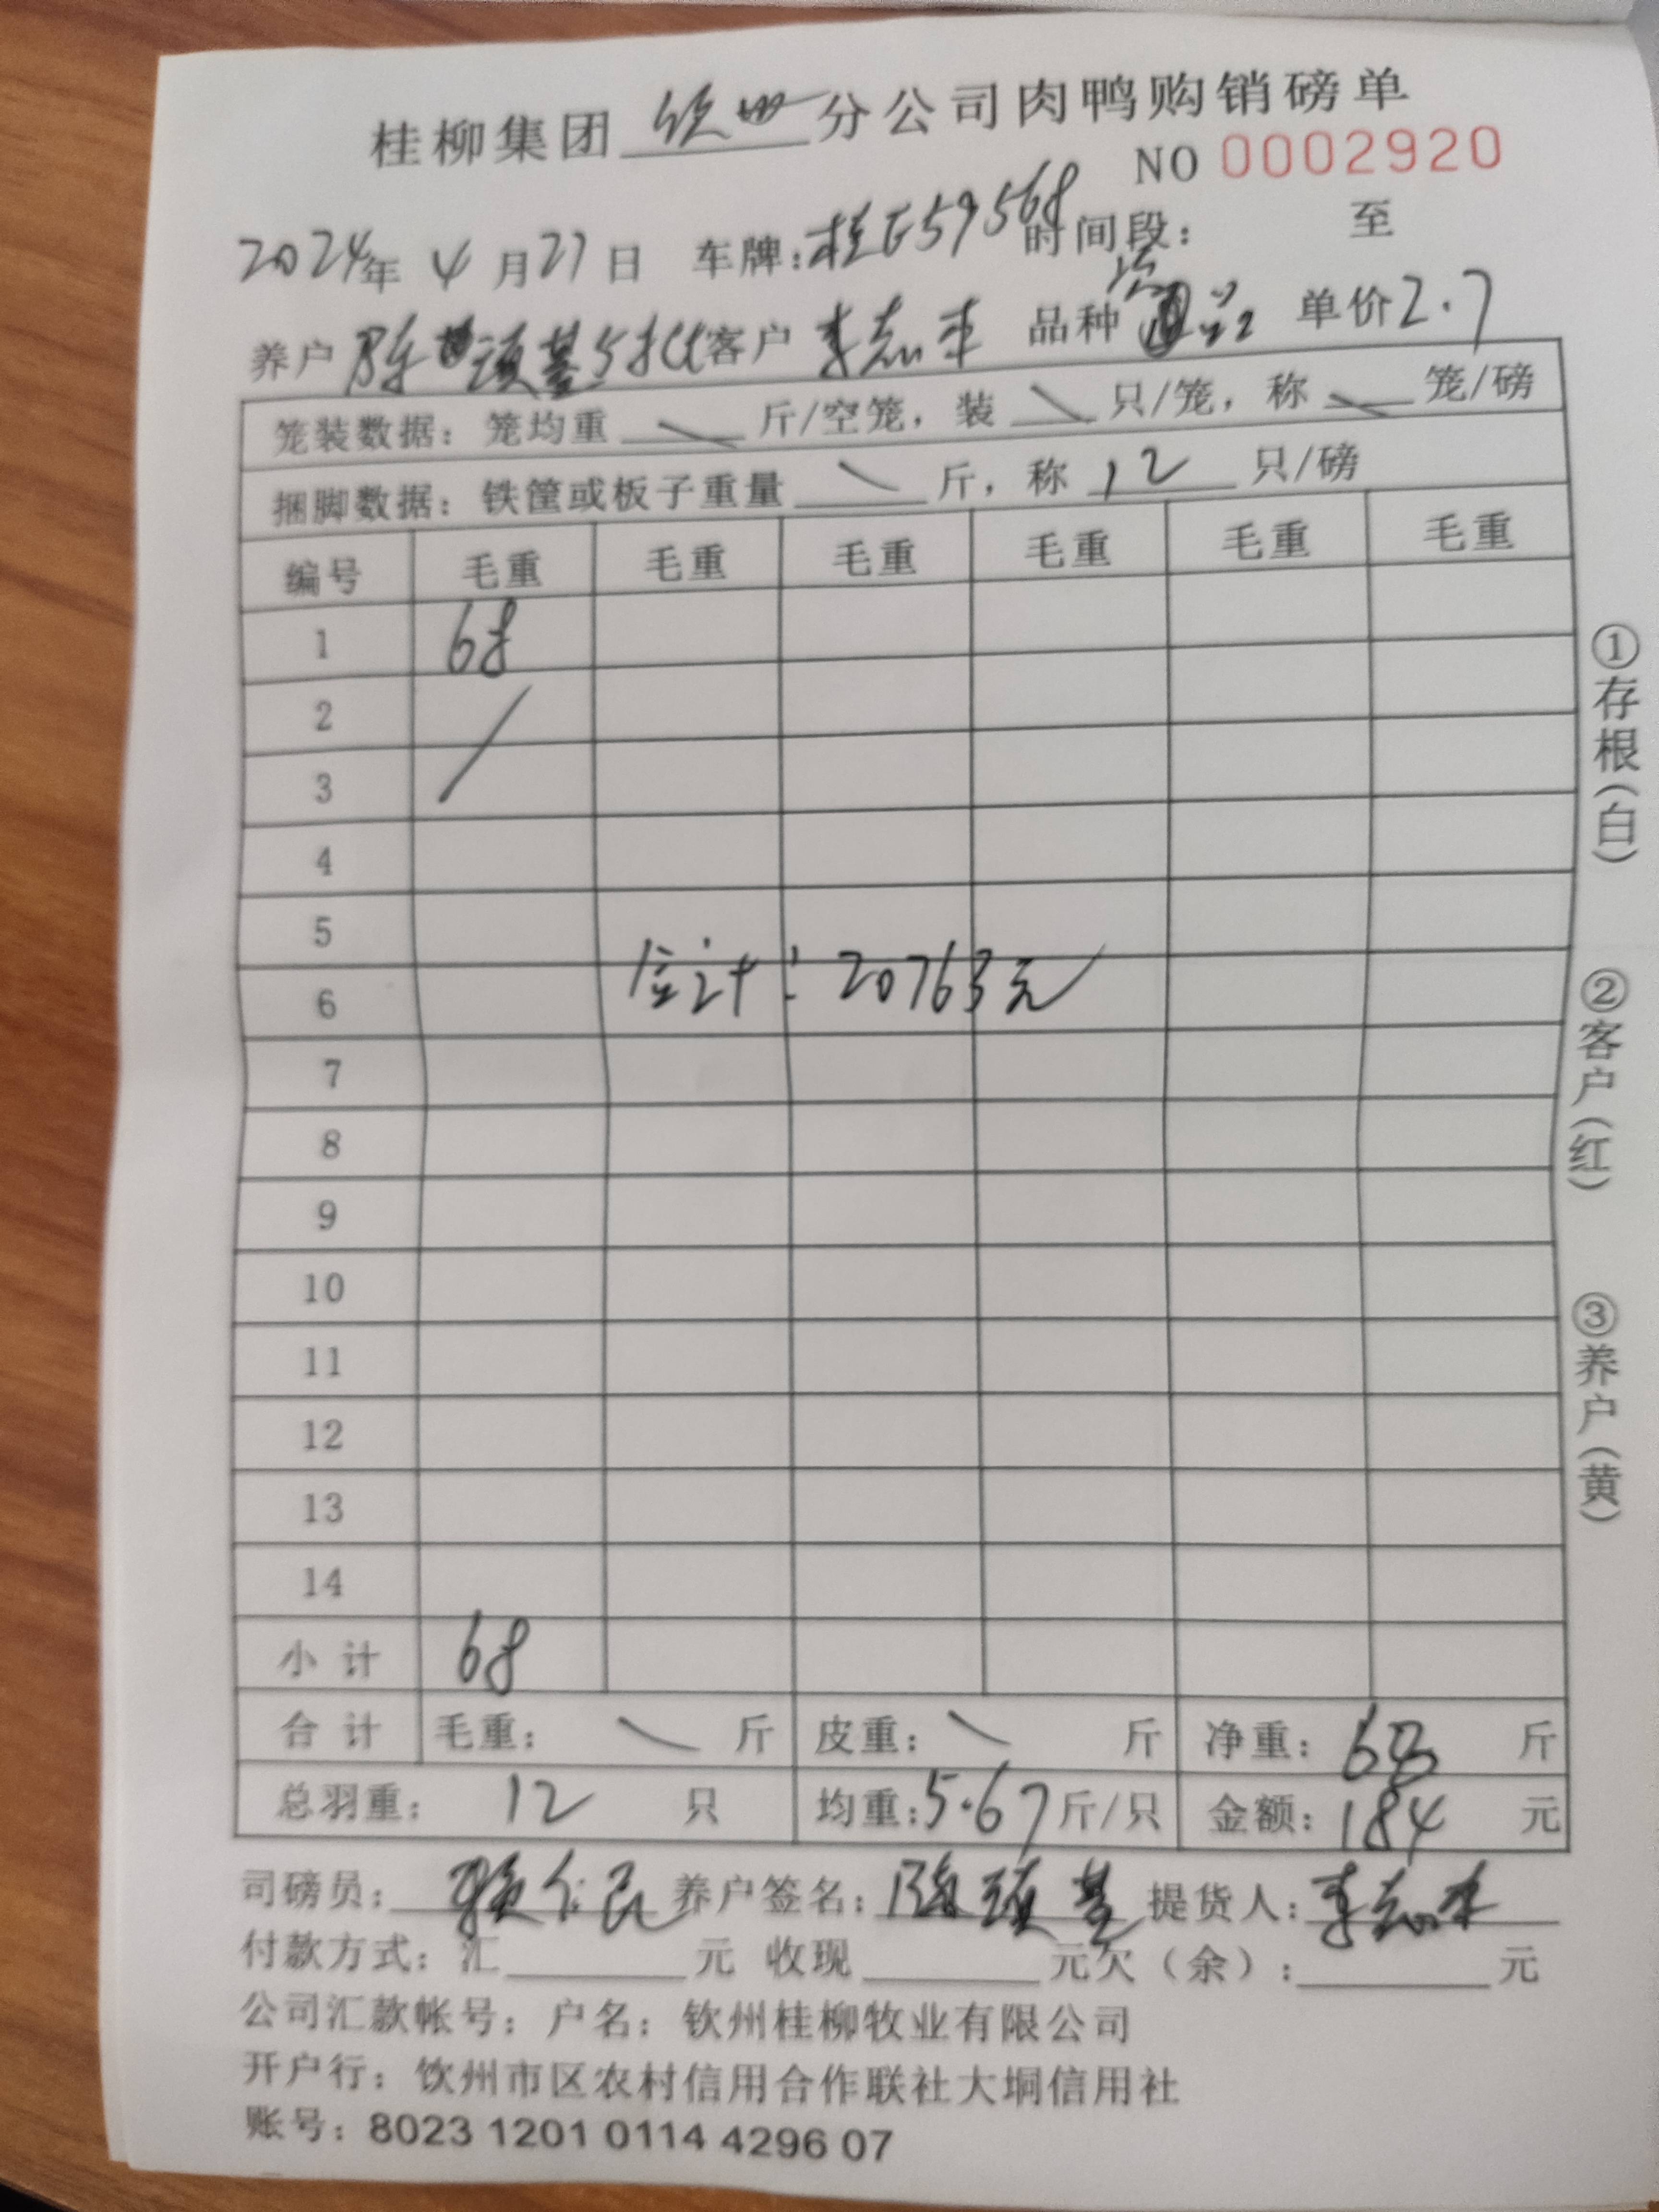 桂柳集团 钦州 分公司肉鸭购销磅单
NO 0002920
2024年 4 月 27 日 车牌:桂E59568 时间段: 至
养户 陈 颂基5批 客户 李志本 品种 单价2.7
笼装数据: 笼均重 \ 斤/空笼, 装 \ 只/笼, 称 \ 笼/磅
捆脚数据: 铁筐或板子重量 \ 斤, 称 12 只/磅
编号 毛重 毛重 毛重 毛重 毛重 毛重
1 68
2 /
3
4
5
6 合计: 20763元
7
8
9
10
11
12
13
14
小 计 68
合 计 毛重: \ 斤 皮重: \ 斤 净重: 68 斤
总羽重: 12 只 均重:5.67斤/只 金额:184 元
司磅员: 养户签名: 陈颂基 提货人:李志本
付款方式: 汇 元 收现 元欠(余): 元
公司汇款帐号: 户名: 钦州桂柳牧业有限公司
开户行: 钦州市区农村信用合作联社大垌信用社
账号: 8023 1201 0114 4296 07
①存根(白)
②客户(红)
③养户(黄)